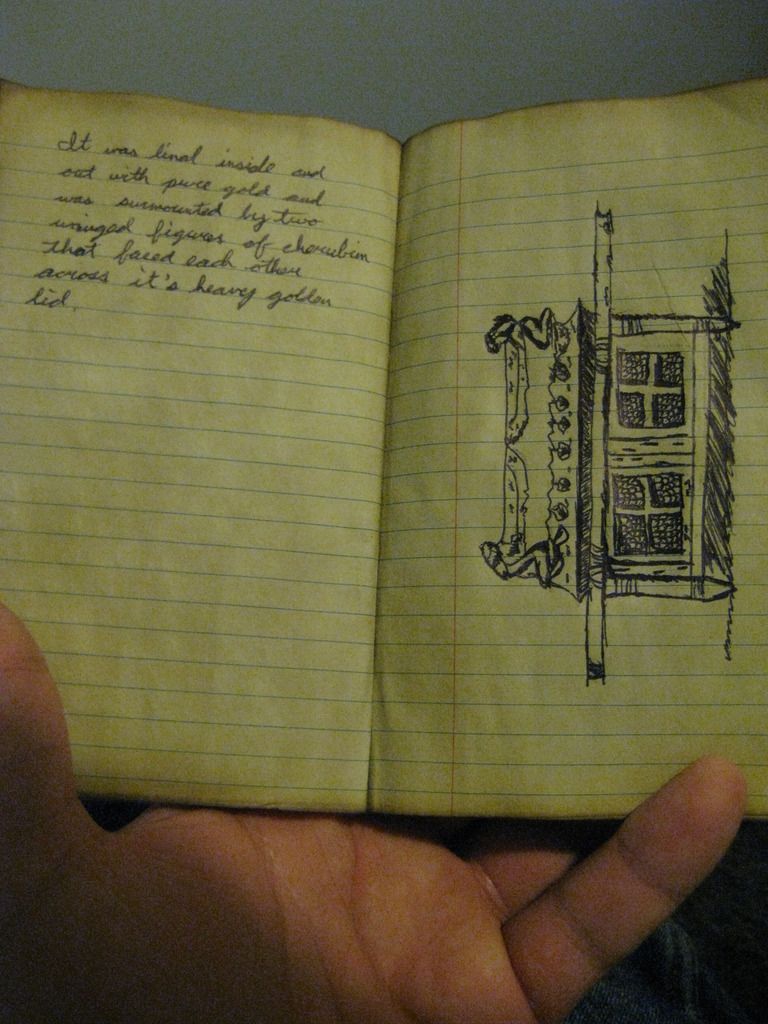 It was lined inside and
out with pure gold and
was surmounted by two
winged figures of cherubim
that faced each other
across it's heavy golden
lid.